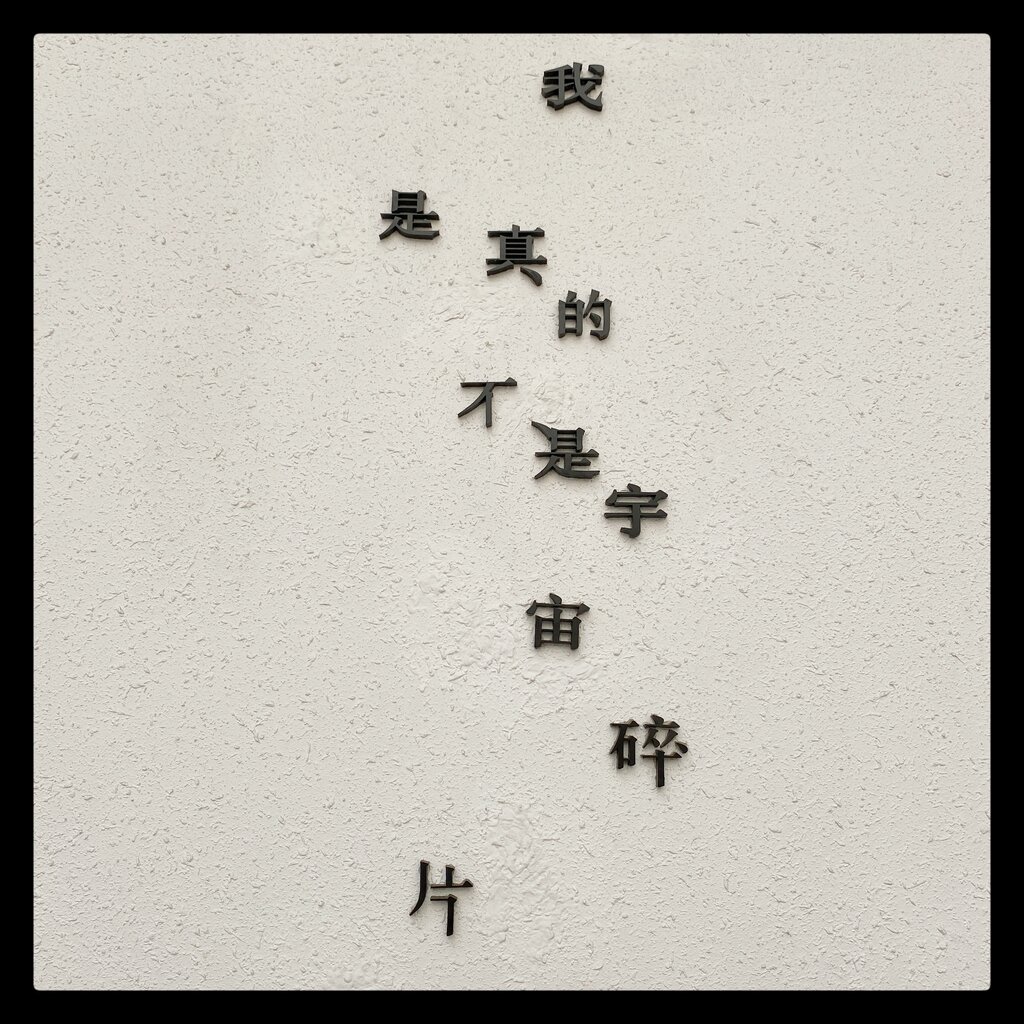 我
是
真
的
不
是
宇
宙
碎
片